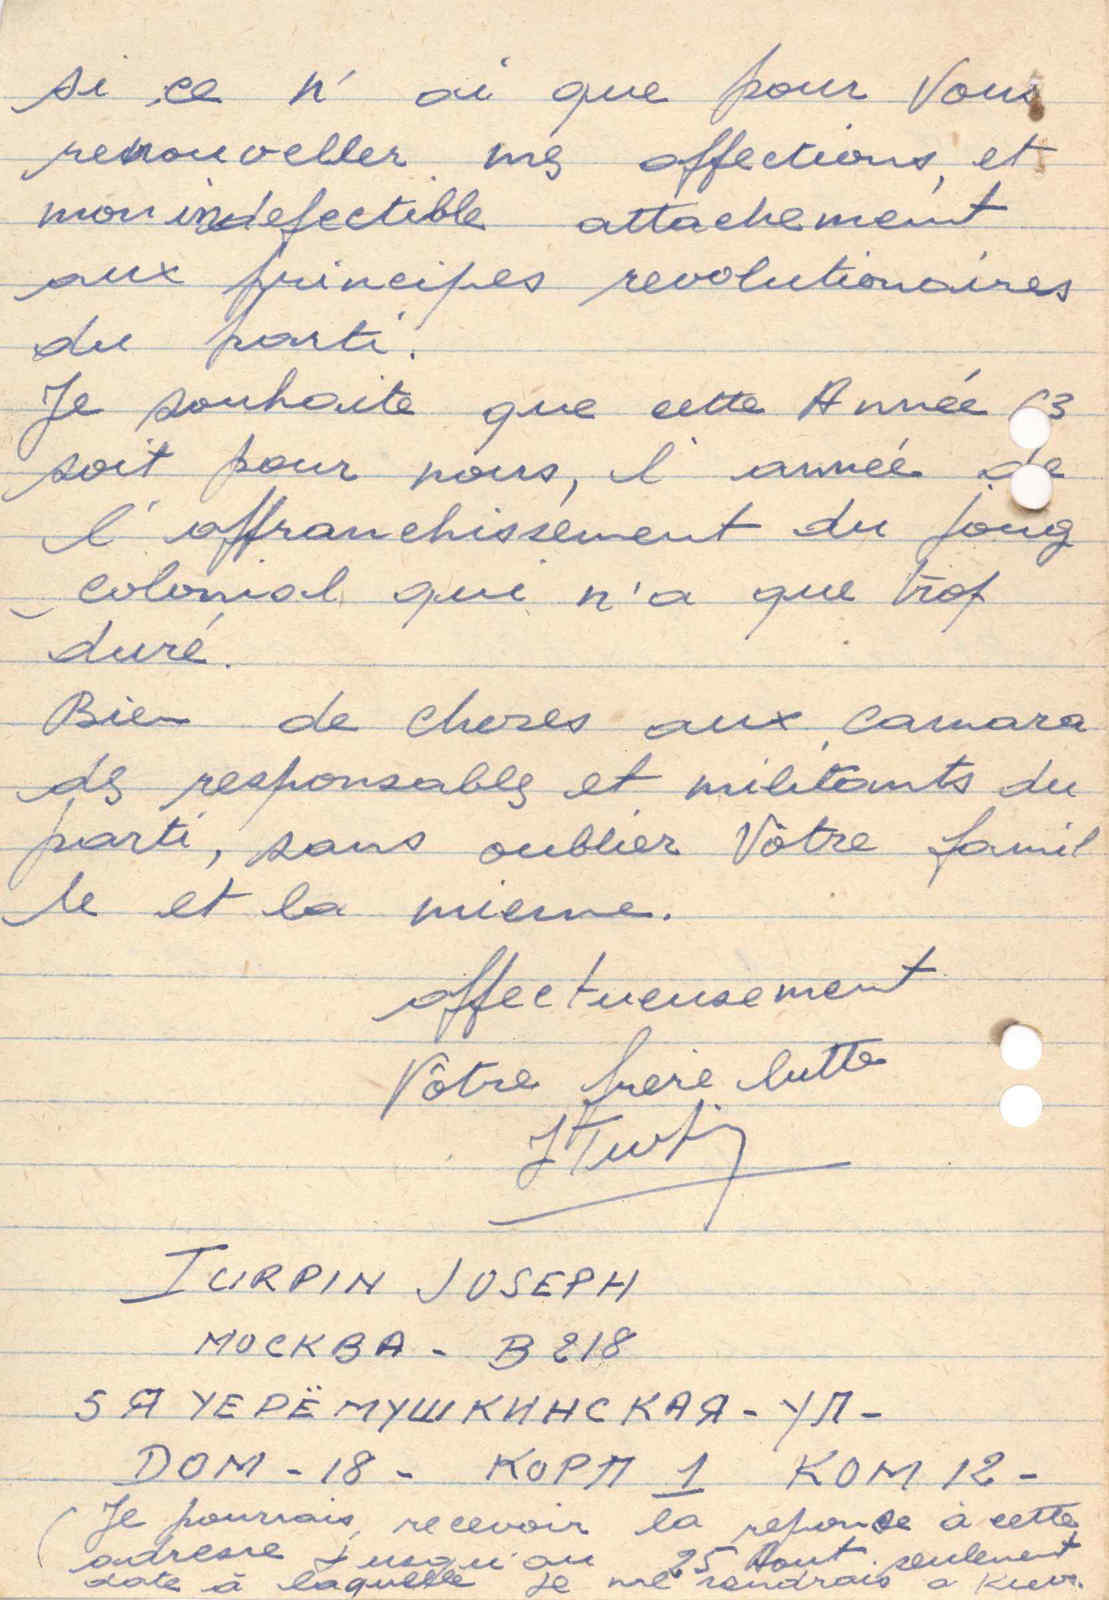 si ce n' ai que pour Vous
renouveller mes affections, et
mon indefectible attachement
aux principes revolutionaires
du parti.
Je souhaite que cette Année 63
soit pour nous, l' année de
l' affranchissement du joug
colonial qui n'a que trop
duré.
Bien de choses aux camara
des responsables et militants du
parti, sans oublier Vôtre famil
le et la mienne.
affectueusement
Vôtre frère lutte
JTurpin
TURPIN JOSEPH
МОСКВА - В 218
5 Я ЧЕРЁМУШКИНСКАЯ - УЛ -
ДОМ - 18 - КОРП 1 КОМ 12 -
(Je pourrais, recevoir la reponse à cette
adresse jusqu'au 25 Aout seulement
date à laquelle je me rendrais a Kiev.